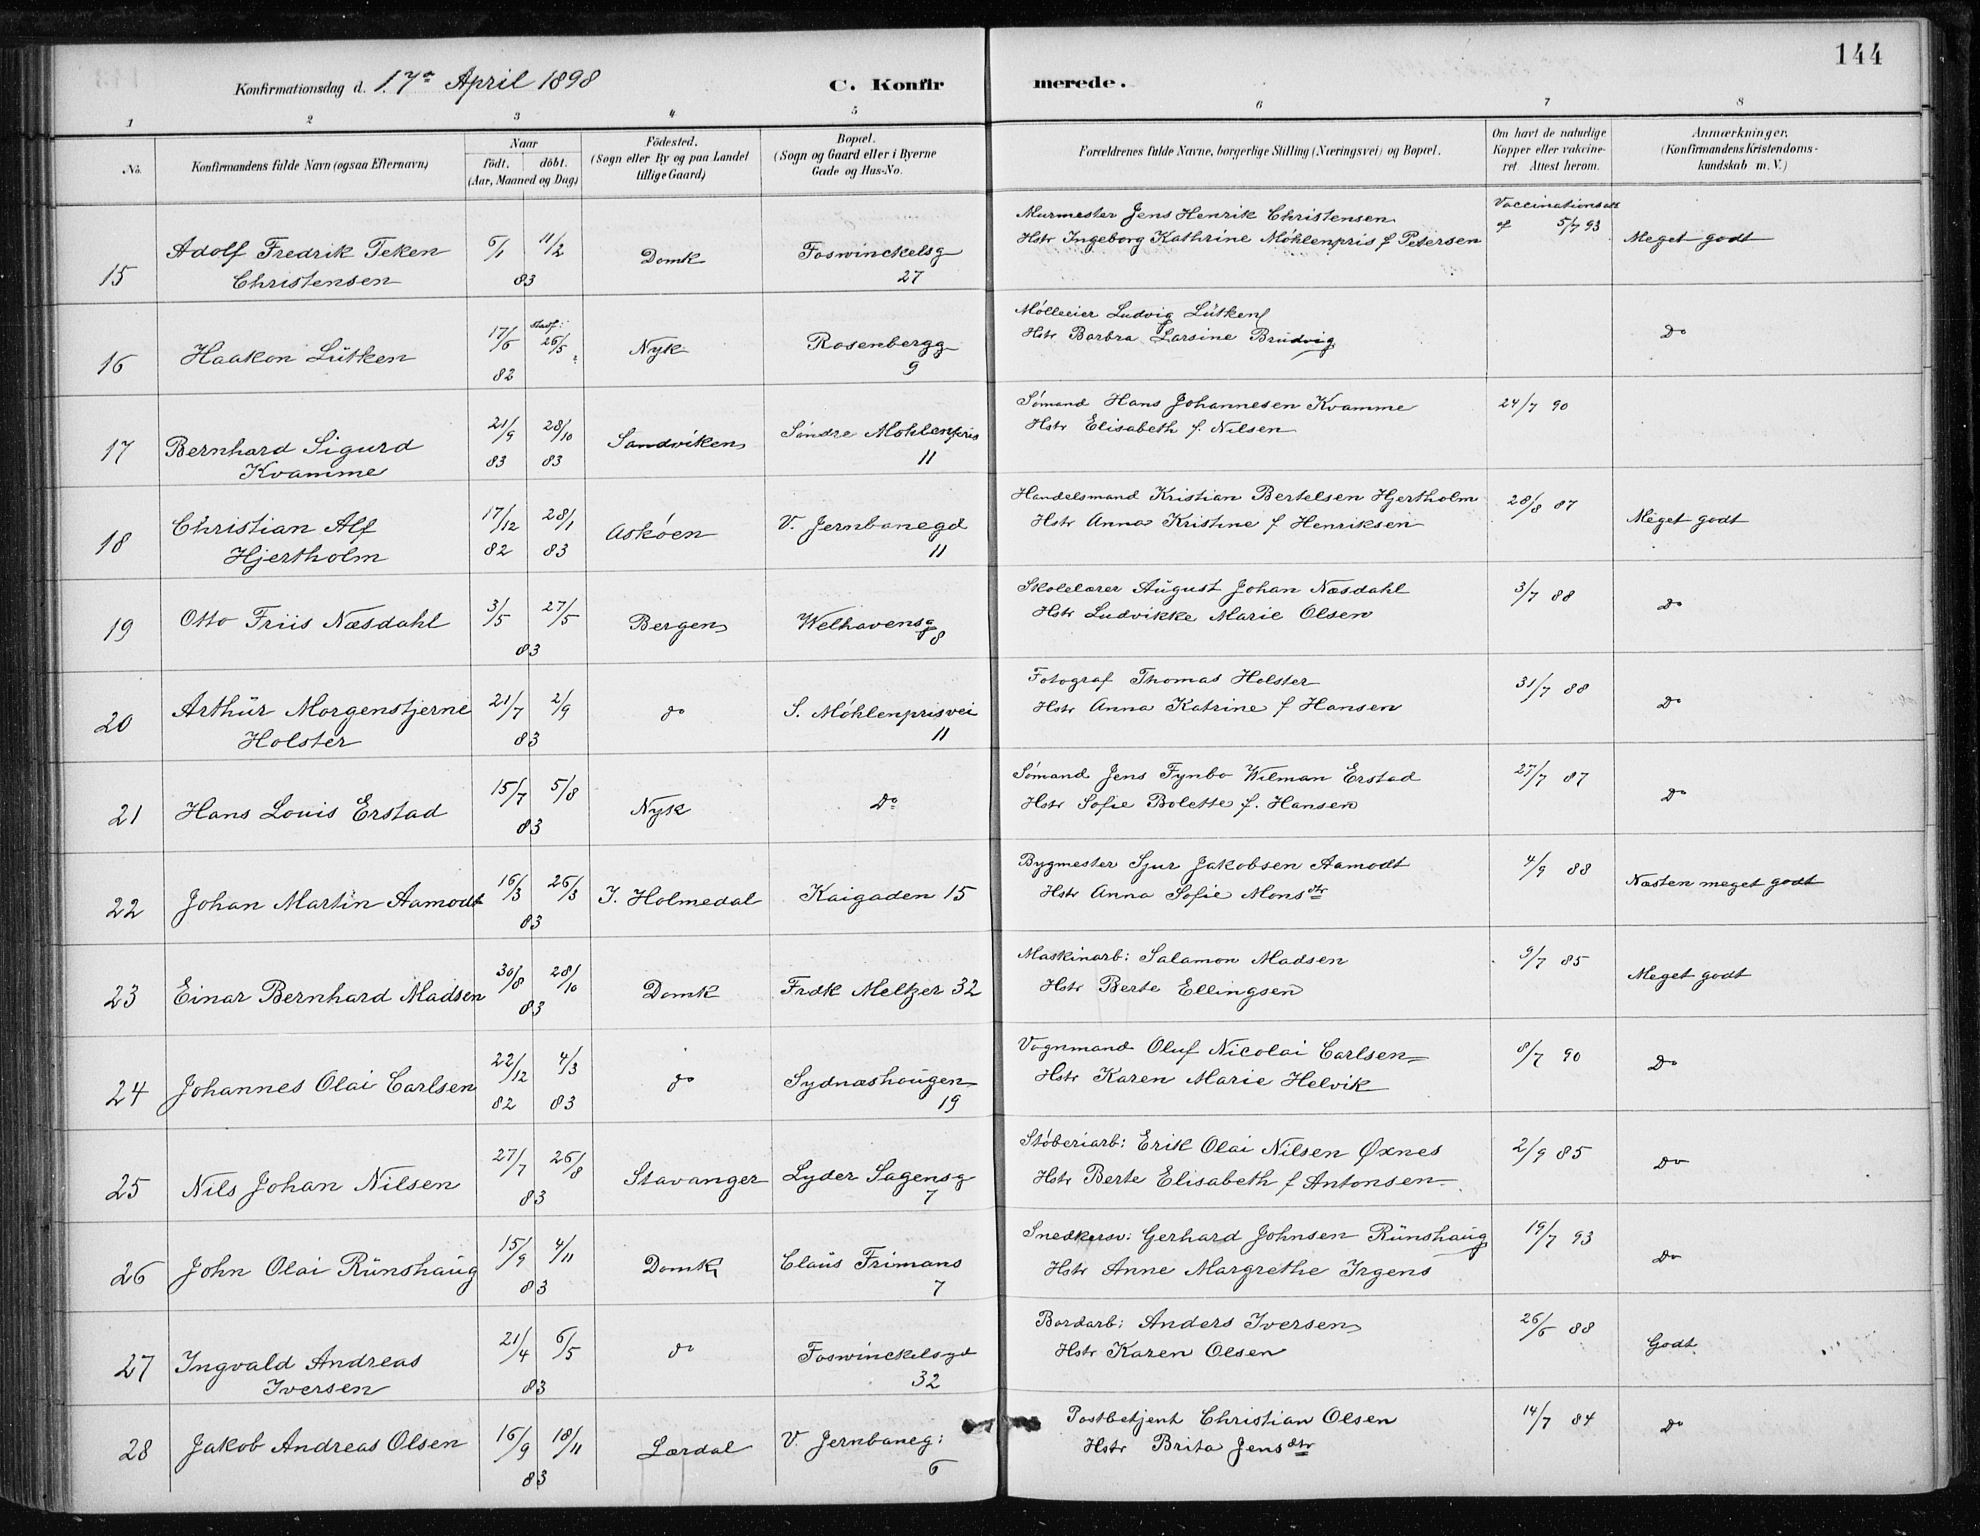 144
Konfirmationsdag d. 17de April 1898 C. Konfirmerede.
1 2 3 4 5 6 7 8
No. Konfirmandens fulde Navn (ogsaa Efternavn) Naar födt. döbt. (Aar, Maaned og Dag) Födested. (Sogn eller By og paa Landet tillige Gaard) Bopæl. (Sogn og Gaard eller i Byerne Gade og Hus-No. Forældrenes fulde Navne, borgerlige Stilling (Næringsvei) og Bopæl. Om havt de naturlige Kopper eller vakcineret. Attest herom. Anmærkninger. (Konfirmandens Kristendomskundskab m. V.)
15 Adolf Fredrik Teken Christensen 6/1 11/2 83 Domk Foswinckelsg 27
Murmester Jens Henrik Christensen
Hstr Ingeborg Kathrine Møhlenpris f Petersen
Vaccinationsatt af 5/7 93 Meget godt
16 Haakon Lütken 17/6 26/5 82 Nyk Rosenbergg 9
Mølleeier Ludvig Lütken
Hstr Barbra Larsine Brudvig
Do
17 Bernhard Sigurd Kvamme 21/9 83 28/10 83 Sandviken Søndre Møhlenpris 11
Sømand Hans Johannesen Kvamme
Hstr Elisabeth f. Nilsen
24/7 90
18 Christian Alf Hjertholm 17/12 82 28/1 83 Askøen V. Jernbanegd 11
Handelsmand Kristian Bertelsen Hjertholm
Hstr Anna Kristine f Henriksen
28/8 87 Meget godt
19 Otto Friis Næsdahl 3/5 27/5 83 Bergen Welhavensg 8
Skolelærer August Johan Næsdahl
Hstr Ludvikke Marie Olsen
3/7 88 Do
20 Arthur Morgenstjerne Holster 21/7 2/9 83 do S. Møhlenprisvei 11
Fotograf Thomas Holster
Hstr Anna Katrine f Hansen
31/7 88 Do
21 Hans Louis Erstad 15/7 5/8 83 Nyk Do
Sømand Jens Fynbo Wilman Erstad
Hstr Sofie Bolette f. Hansen
27/7 87 Do
22 Johan Martin Aamodt 16/3 26/3 83 I. Holmedal Kaigaden 15
Bygmester Sjur Jakobsen Aamodt
Hstr Anna Sofie Monsdtr
4/9 88 Næsten meget godt
23 Einar Bernhard Madsen 30/8 28/10 83 Domk Frdk Meltzer 32
Maskinarb: Salamon Madsen
Hstr Berte Ellingsen
9/7 85 Meget godt
24 Johannes Olai Carlsen 22/12 82 4/3 83 do Sydnæshougen 19
Vognmand Oluf Nicolai Carlsen
Hstr Karen Marie Helvik
8/7 90 Do
25 Nils Johan Nilsen 27/7 26/8 83 Stavanger Lyder Sagensg 7
Støberiarb: Erik Olai Nilsen Øxnes
Hstr Berte Elisabeth f Antonsen
2/9 85 Do
26 John Olai Runshaug 15/9 4/11 83 Domk Claus Frimans 7
Snedkersv: Gerhard Johnsen Runshaug
Hstr Anne Margrethe Irgens
19/7 93 Do
27 Ingvald Andreas Iversen 21/4 6/5 83 do Foswinckelsgd 32
Bordarb: Anders Iversen
Hstr Karen Olsen
26/6 88 Godt
28 Jakob Andreas Olsen 16/9 18/11 83 Lærdal V. Jernbaneg: 6
Postbetjent Christian Olsen
Hstr Brita Jensdtr
14/7 84 Do